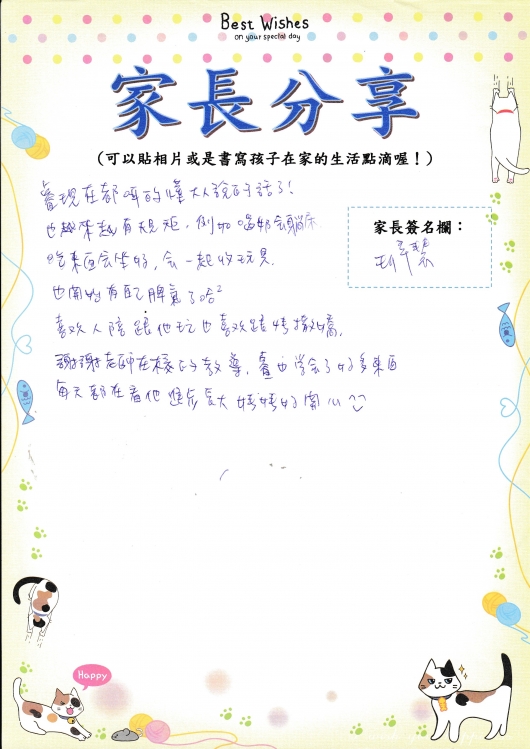 Best Wishes
on your special day
家長分享
(可以貼相片或是書寫孩子在家的生活點滴喔！)
家長簽名欄：
現在都聽的懂大人說的話了!
也越來越有規矩，例如喝奶會躺床
吃東西會坐好，會一起收玩具.
也開始有自己脾氣了哈²
喜歡人陪跟他玩也喜歡跟媽撒嬌,
謝謝老師在校的教導，也學會了好多東西
每天都在看他進步長大 媽媽好開心
Happy